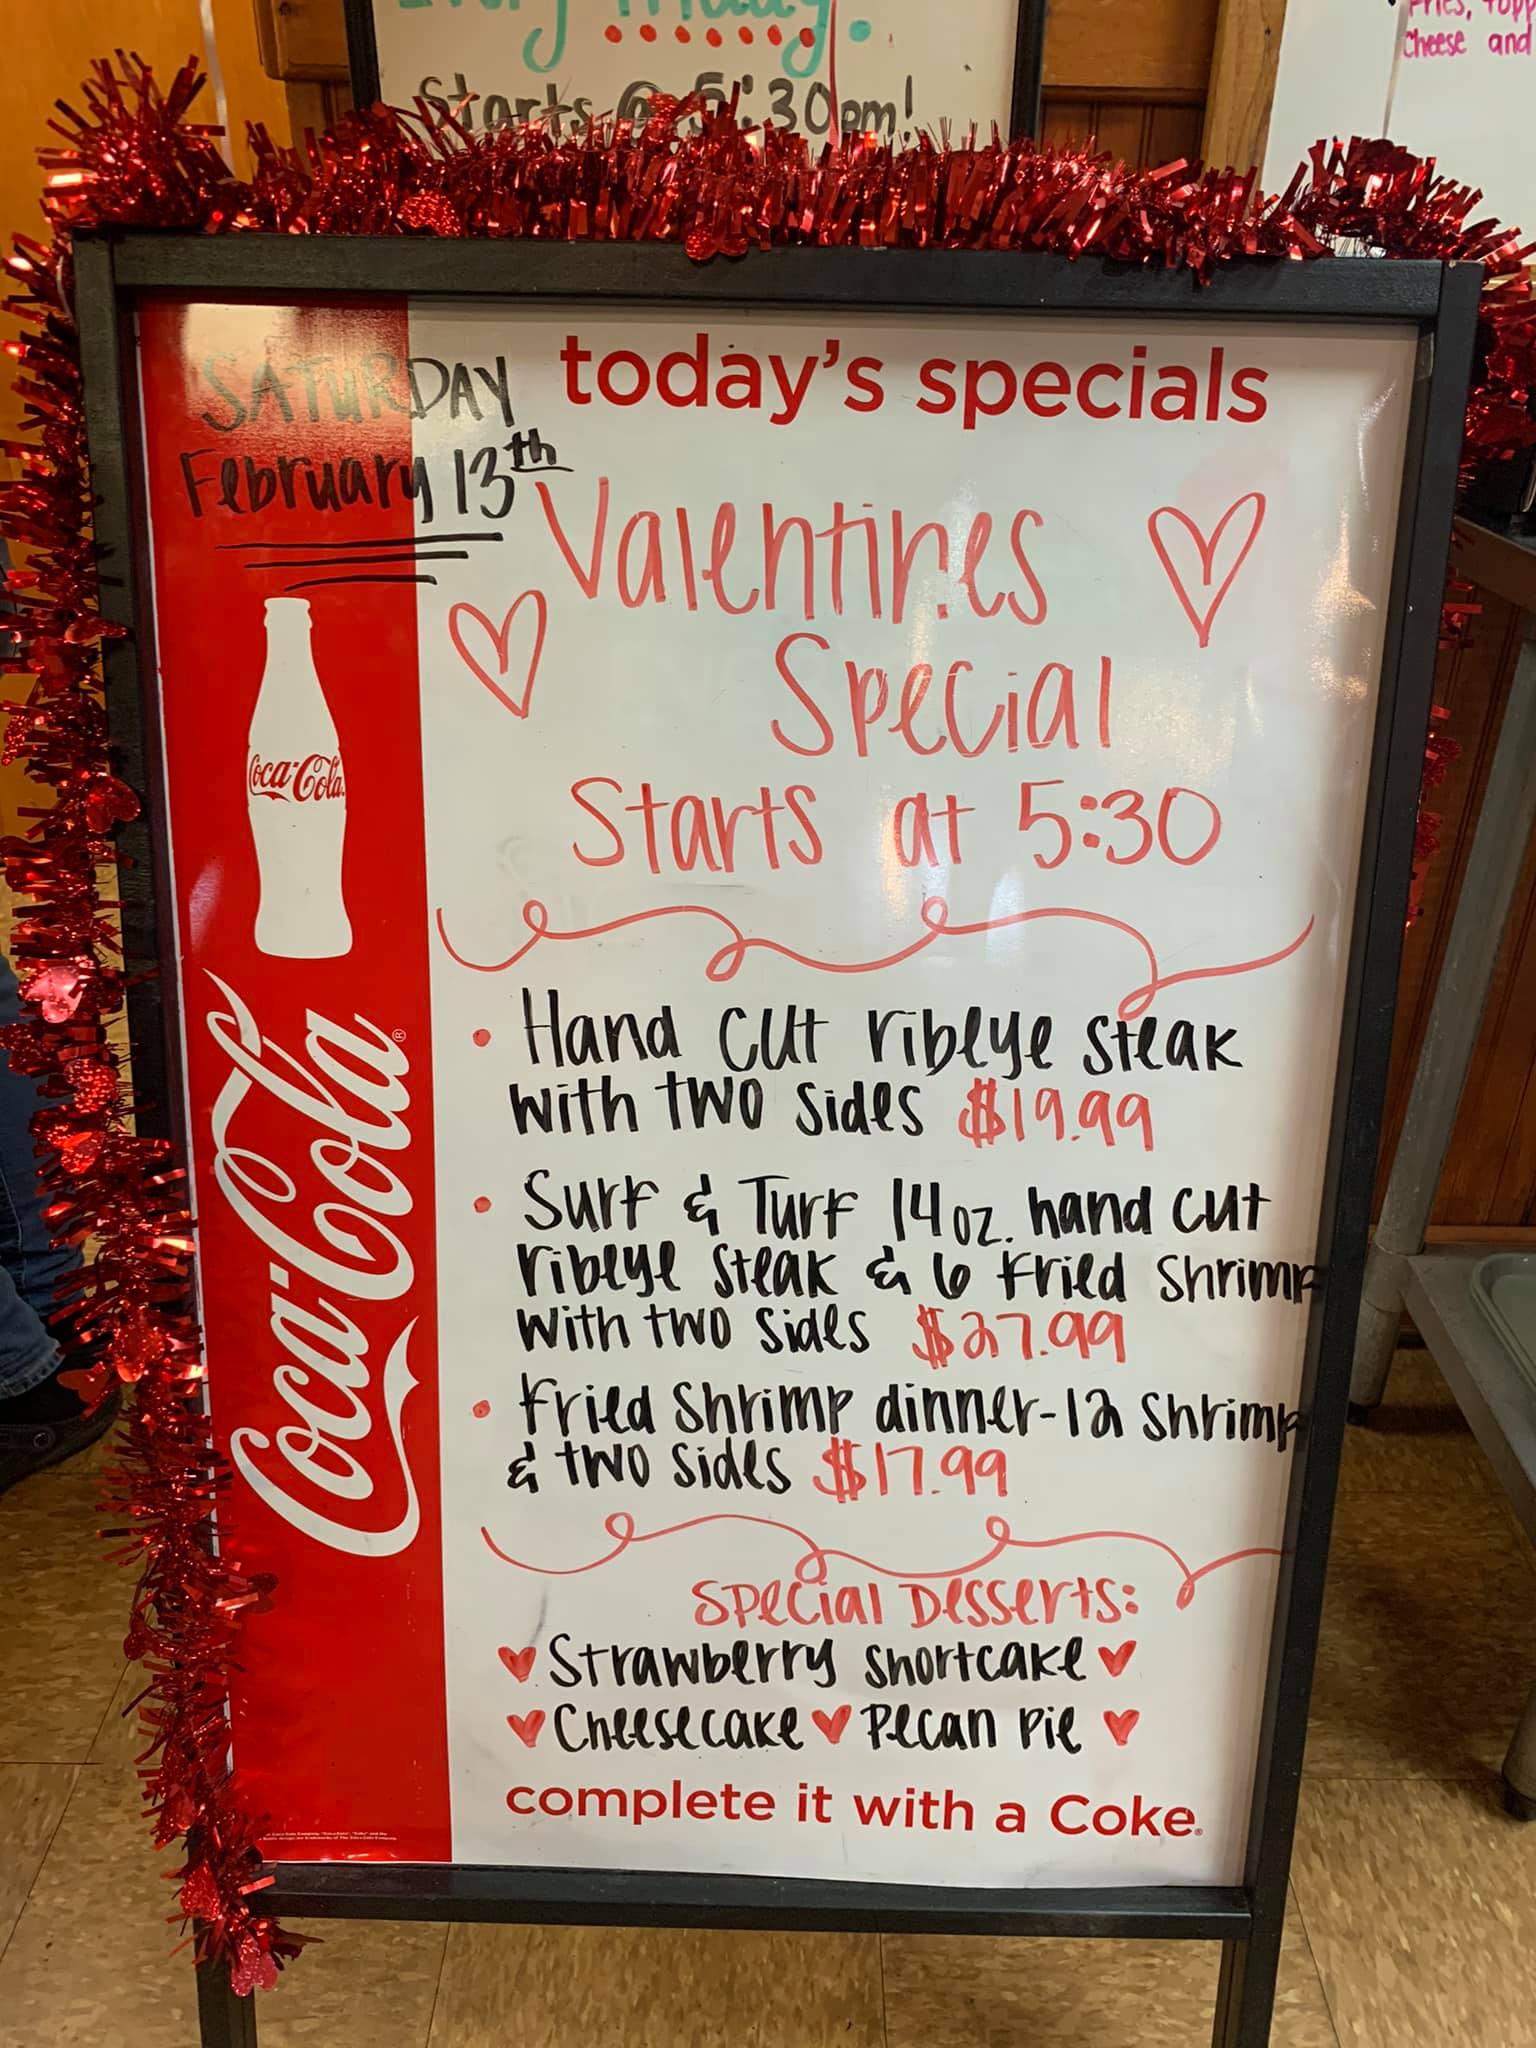 Every Friday.
Starts @ 5:30pm!
Fries, topp
Cheese and
today's specials
SATURDAY
February 13th
Valentines
Special
Starts at 5:30
Coca-Cola
Coca-Cola®
• Hand cut ribeye steak
with two sides $19.99
• Surf & Turf 14oz. hand cut
ribeye steak & 6 fried shrimp
with two sides $27.99
• Fried shrimp dinner-12 shrimp
& two sides $17.99
Special Desserts:
Strawberry shortcake
Cheesecake Pecan pie
complete it with a Coke®